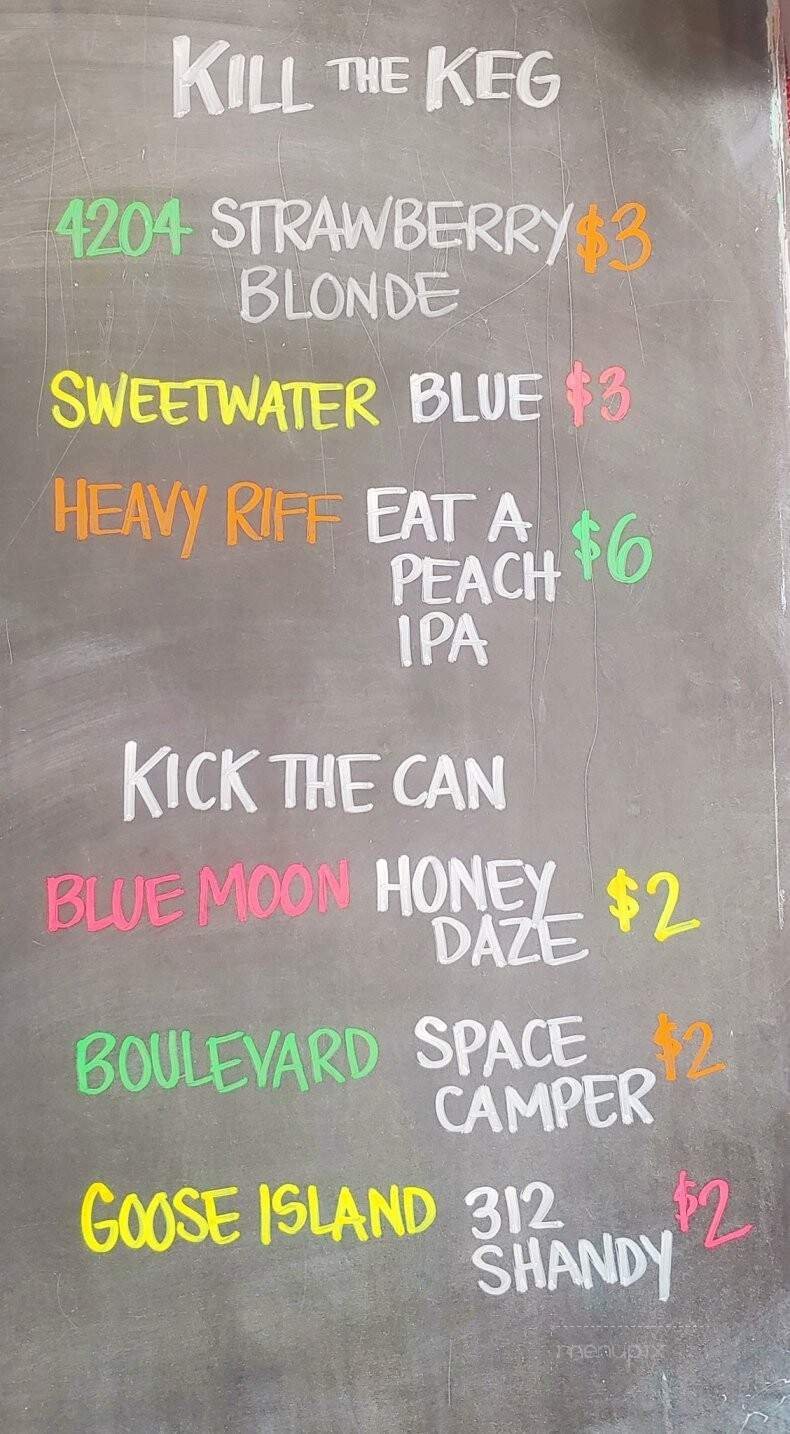 KILL THE KEG
4204 STRAWBERRY $3
BLONDE
SWEETWATER BLUE $3
HEAVY RIFF EAT A $6
PEACH
IPA
KICK THE CAN
BLUE MOON HONEY $2
DAZE
BOULEVARD SPACE $2
CAMPER
GOOSE ISLAND 312 $2
SHANDY
menupix